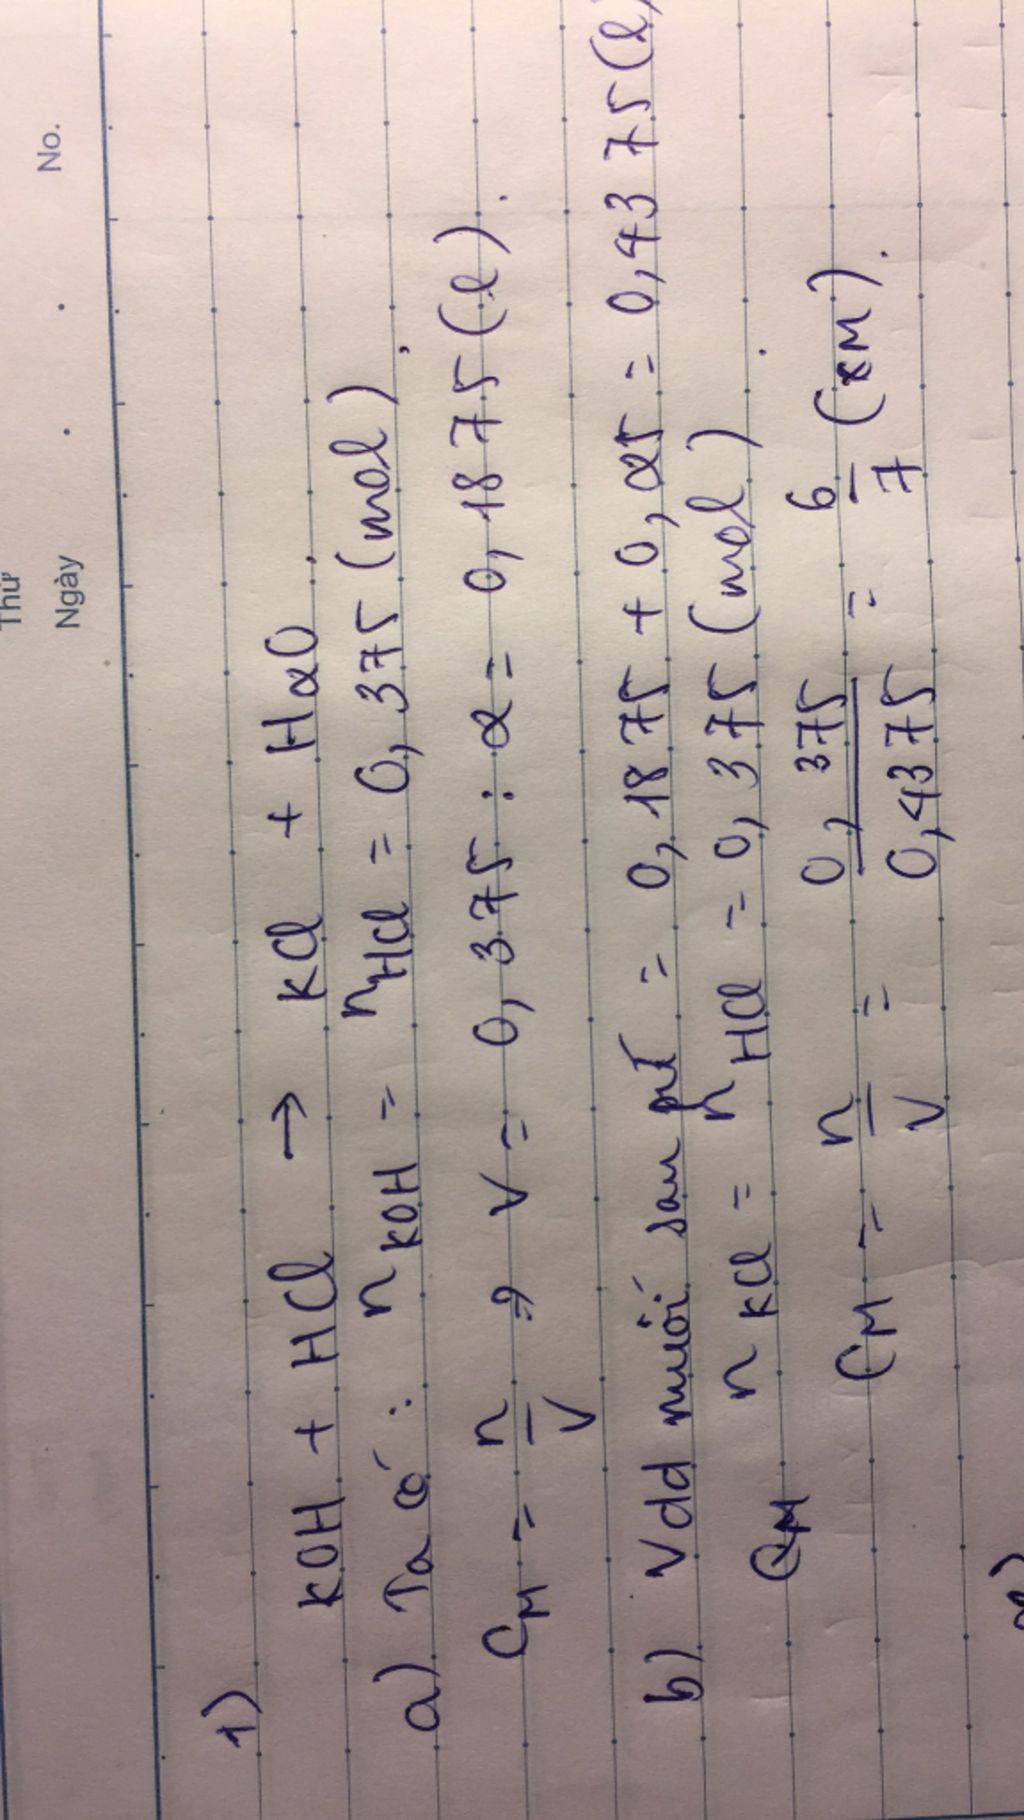 Thứ
Ngày . . No.
1)
KOH + HCl → KCl + H2O.
a) Ta có : nKOH = nHCl = 0,375 (mol).
CM = n/V => V = 0,375 : 2 = 0,1875 (l).
b) Vdd muối sau pứ = 0,1875 + 0,25 = 0,4375 (l)
nKCl = nHCl = 0,375 (mol).
CM
CM = n/V = 0,375/0,4375 = 6/7 (M).